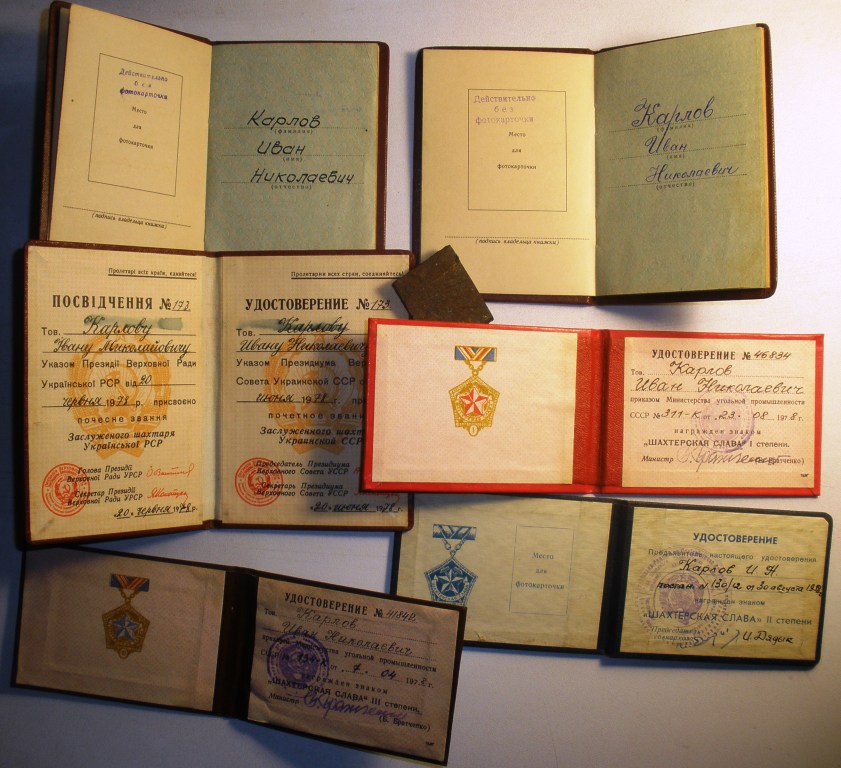 Действительно
без
фотокарточки
Место
для
фотокарточки
(подпись владельца книжки)
Карлов
(фамилия)
Иван
(имя)
Николаевич
(отчество)
Действительно
без
фотокарточки
Место
для
фотокарточки
(подпись владельца книжки)
Карлов
(фамилия)
Иван
(имя)
Николаевич
(отчество)
Пролетарі всіх країн, єднайтеся!
ПОСВІДЧЕННЯ № 173.
Тов. Карлову
Івану Миколайовичу
Указом Президії Верховної Ради
Української РСР від 20
червня 1978 р. присвоєно
почесне звання
Заслуженого шахтаря
Української РСР
Голова Президії
Верховної Ради УРСР
Секретар Президії
Верховної Ради УРСР
«20» червня 1978 р.
Пролетарии всех стран, соединяйтесь!
УДОСТОВЕРЕНИЕ № 173.
Тов. Карлову
Ивану Николаевичу
Указом Президиума Верхо
Совета Украинской ССР о
июня 1978 г. присвое
почетное звание
Заслуженного шахте
Украинской ССР
Председатель Президиума
Верховного Совета УССР
Секретарь Президиума
Верховного Совета УССР
«20» июня 1978 г.
1
УДОСТОВЕРЕНИЕ № 46834
Тов. Карлов
Иван Николаевич
приказом Министерства угольной промышленности
СССР № 311-К от «23» 08 1978 г.
награжден знаком
„ШАХТЕРСКАЯ СЛАВА" I степени.
Министр (Б. Братченко)
Место
для
фотокарточки
УДОСТОВЕРЕНИЕ
Предъявитель настоящего удостоверения
Карлов И. Н.
от 30 августа
награжден знаком
„ШАХТЕРСКАЯ СЛАВА" II степени
И. Дядык
УДОСТОВЕРЕНИЕ № 41848
Тов. Карлов
Иван Николаевич
приказом Министерства угольной промышленности
СССР № 134-К от «7» 04 197 г.
награжден знаком
„ШАХТЕРСКАЯ СЛАВА" III степени.
Министр
(Б. Братченко)